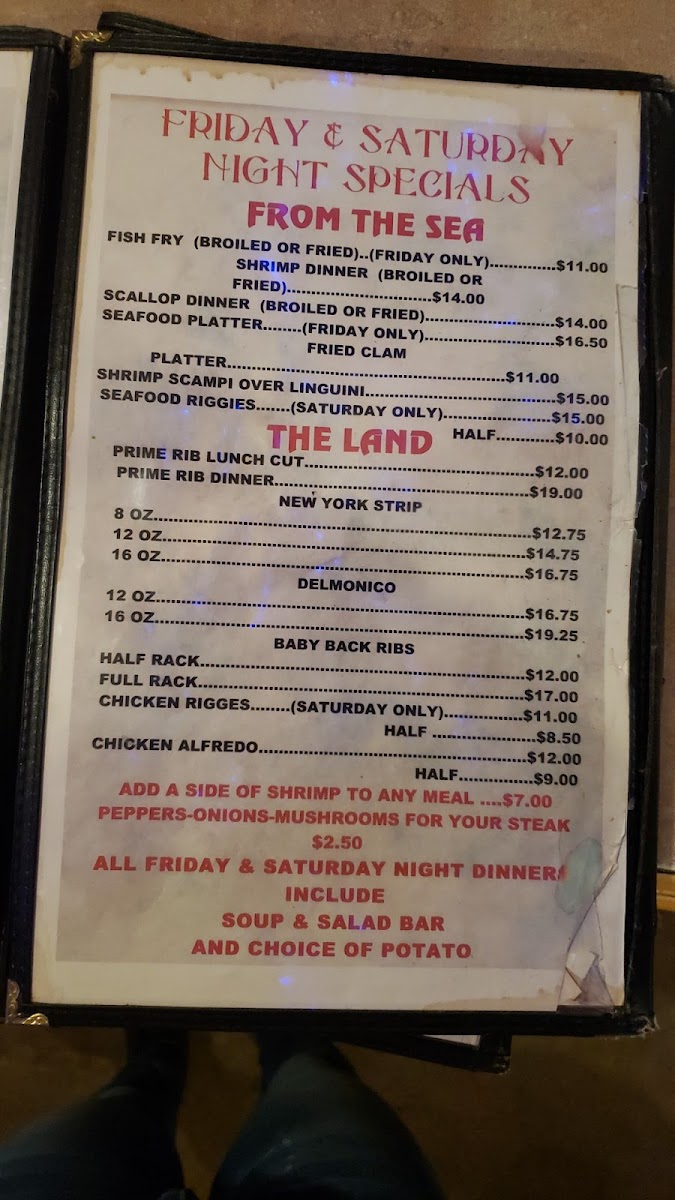 FRIDAY & SATURDAY
NIGHT SPECIALS
FROM THE SEA
FISH FRY (BROILED OR FRIED)..(FRIDAY ONLY).............$11.00
SHRIMP DINNER (BROILED OR
FRIED)..............................$14.00
SCALLOP DINNER (BROILED OR FRIED)..........................$14.00
SEAFOOD PLATTER........(FRIDAY ONLY)..........................$16.50
FRIED CLAM
PLATTER.........................................................$11.00
SHRIMP SCAMPI OVER LINGUINI............................................$15.00
SEAFOOD RIGGIES.......(SATURDAY ONLY)......................$15.00
HALF............$10.00
THE LAND
PRIME RIB LUNCH CUT..............................................$12.00
PRIME RIB DINNER...................................................$19.00
NEW YORK STRIP
8 OZ............................................................................$12.75
12 OZ.........................................................................$14.75
16 OZ.........................................................................$16.75
DELMONICO
12 OZ..........................................................................$16.75
16 OZ..........................................................................$19.25
BABY BACK RIBS
HALF RACK.................................................................$12.00
FULL RACK.................................................................$17.00
CHICKEN RIGGES........(SATURDAY ONLY)................$11.00
HALF .....................$8.50
CHICKEN ALFREDO......................................................$12.00
HALF...............$9.00
ADD A SIDE OF SHRIMP TO ANY MEAL ....$7.00
PEPPERS-ONIONS-MUSHROOMS FOR YOUR STEAK
$2.50
ALL FRIDAY & SATURDAY NIGHT DINNERS
INCLUDE
SOUP & SALAD BAR
AND CHOICE OF POTATO